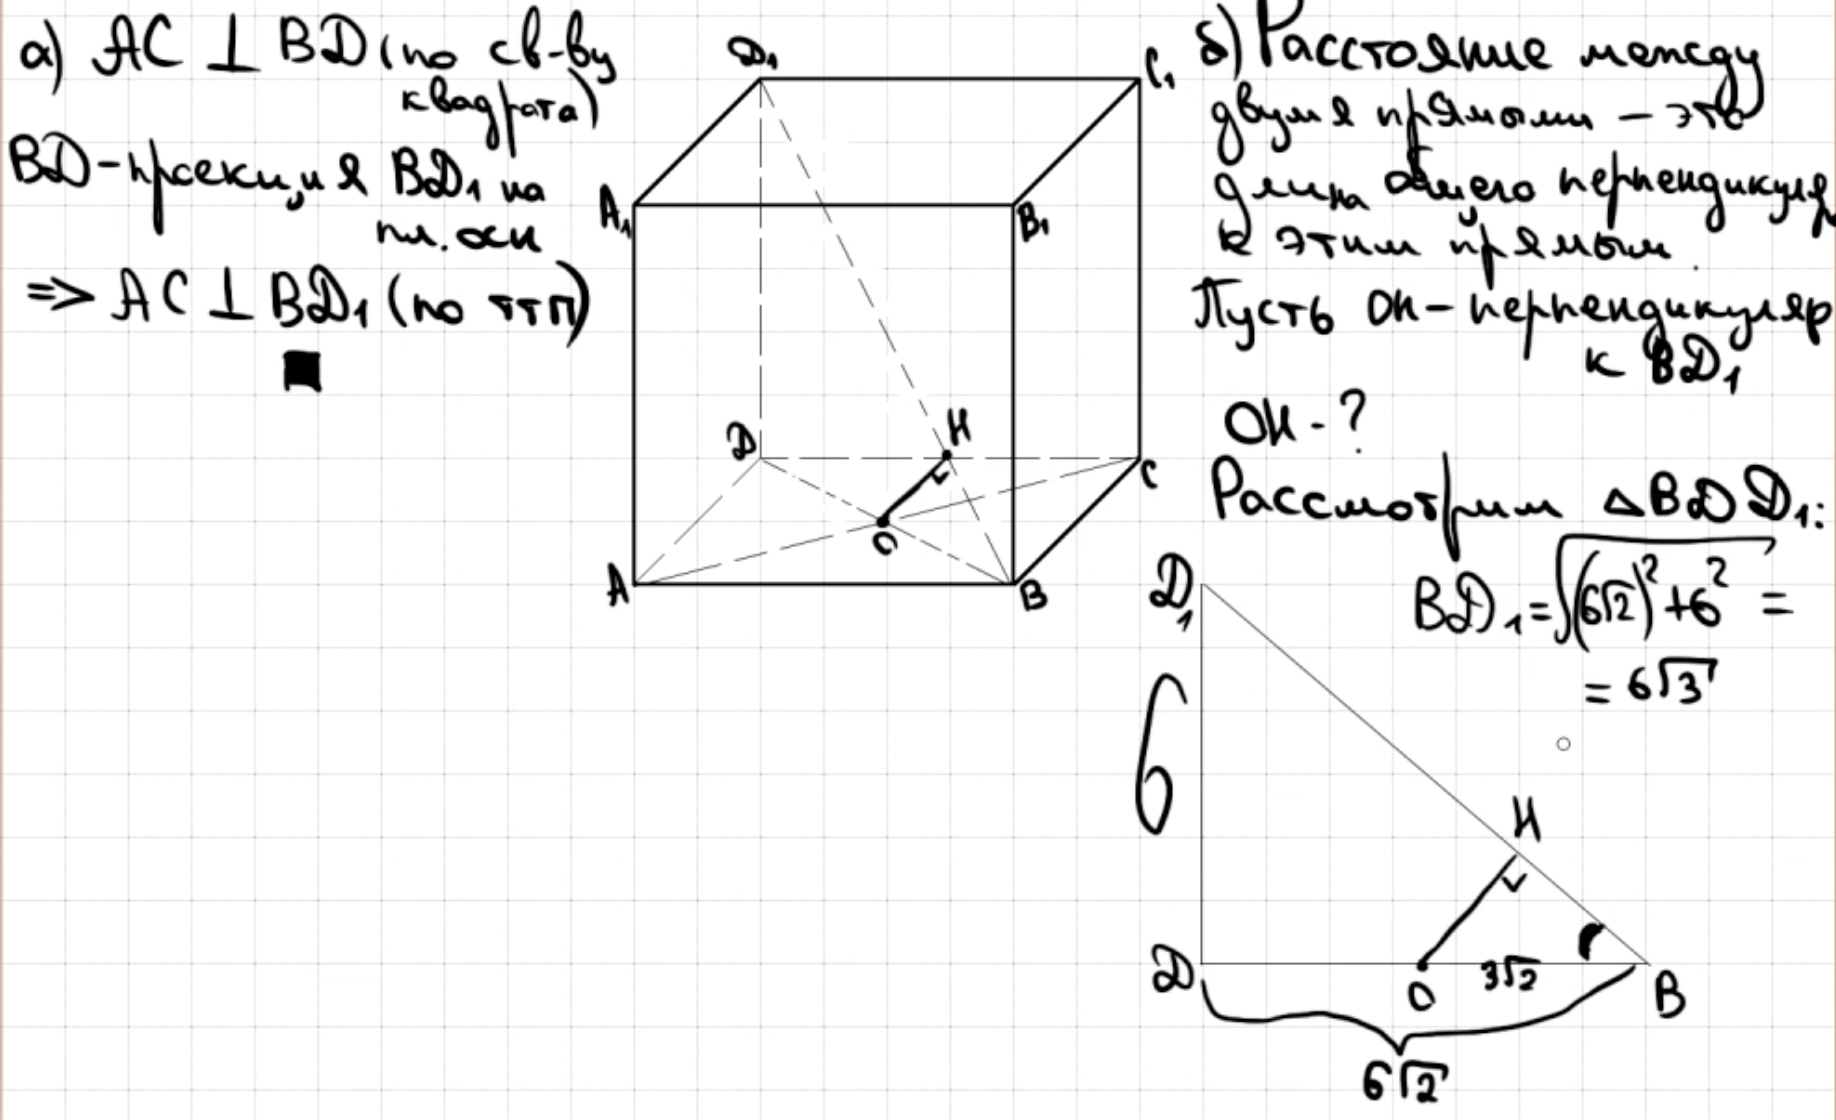 а) AC ⊥ BD (по св-ву
квадрата)
BD - проекция BD₁ на
пл. осн
=> AC ⊥ BD₁ (по ттп)
D₁
C₁
A₁
B₁
D
H
C
O
A
B
б) Расстояние между
двумя прямыми – это
длина общего перпендикуляр
к этим прямым.
Пусть OH – перпендикуляр
к BD₁
OH - ?
Рассмотрим △BDD₁:
BD₁ = √((6√2)² + 6²) =
= 6√3
D₁
6
H
D
O
3√2
B
6√2